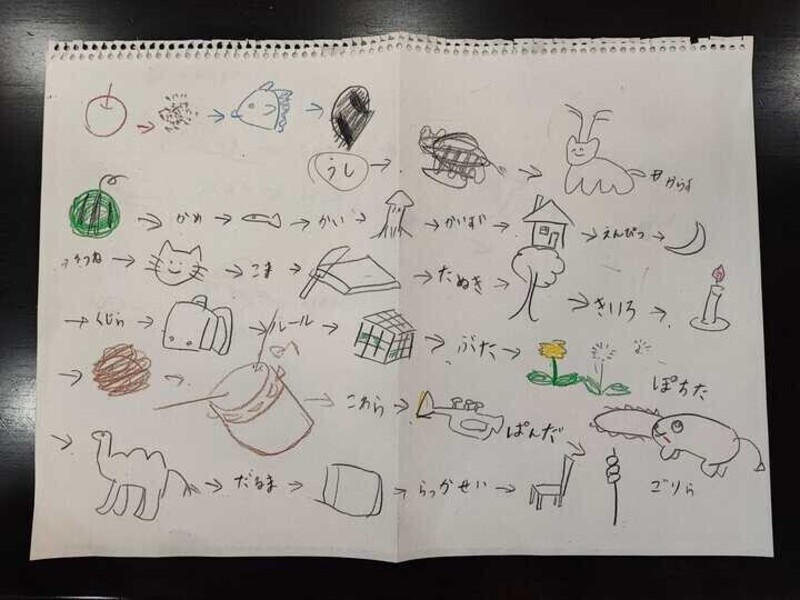 うし
からす
かめ かい えんぴつ
きつね こま たぬき きいろ
くじら ルール ぶた
ぽちた
こあら ぱんだ
だるま らっかせい ごりら